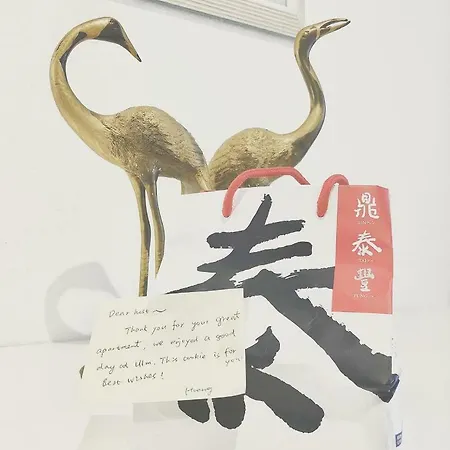 泰
鼎
泰
豐
Dear host~
Thank you for your great
apartment, we enjoyed a good
day at Ulm. This cookie is for you
Best wishes!